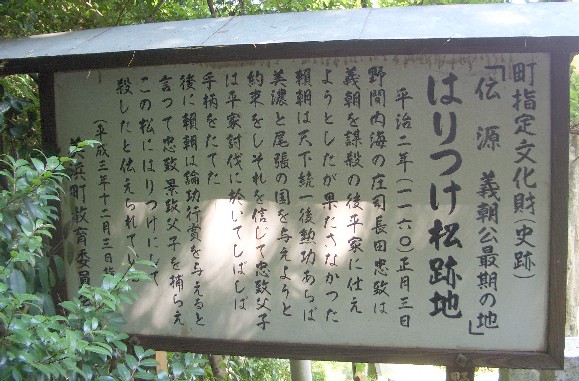 町指定文化財(史跡)
「伝 源 義朝公最期の地」
はりつけ松跡地
平治二年(一一六〇)正月三日
野間内海の庄司長田忠致は
義朝を謀殺の後平家に仕え
ようとしたが果たさなかつた
頼朝は天下統一後勲功あらば
美濃と尾張の国を与えようと
約束をしそれを信じて忠致父子
は平家討伐に於いてしばしば
手柄をたてた
後に頼朝は論功行賞を与えると
言つて忠致景致父子を捕らえ
この松にはりつけにして
殺したと伝えられてい
(平成三年十二月三日指
美浜町教育委員